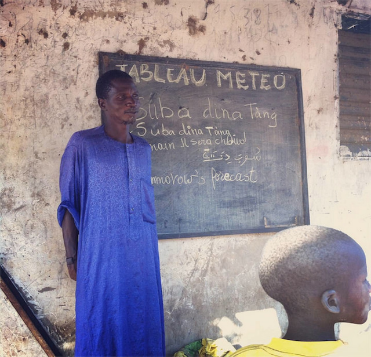 TABLEAU METEO
Suba dina Tàng
Suba dina Tàng
main Il sera chaud
morrow's forecast